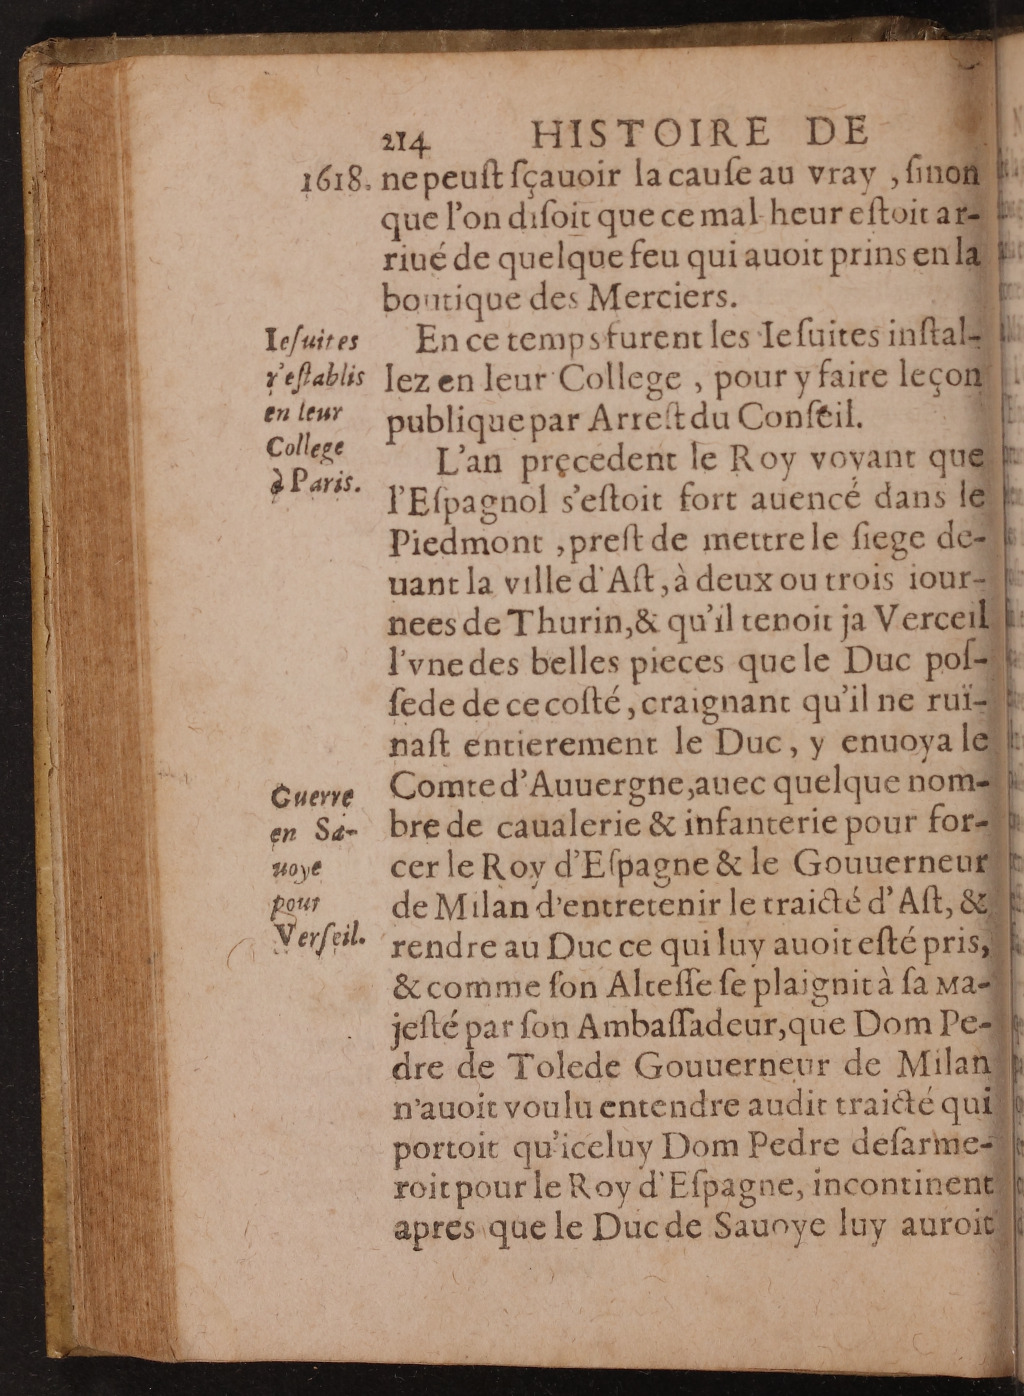 214 HISTOIRE DE
1618. ne peuſt ſçauoir la cauſe au vray, ſinon
que l'on diſoit que ce mal-heur eſtoit ar-
riué de quelque feu qui auoit prins en la
boutique des Merciers.
Ieſuites
r'eſtablis
en leur
College
à Paris.
En ce temps furent les Ieſuites inſtal-
lez en leur College, pour y faire leçon
publique par Arreſt du Conſeil.
L'an precedent le Roy voyant que
l'Eſpagnol s'eſtoit fort auencé dans le
Piedmont, preſt de mettre le ſiege de-
uant la ville d'Aſt, à deux ou trois iour-
nees de Thurin, & qu'il tenoit ja Verceil
l'vne des belles pieces que le Duc poſ-
ſede de ce coſté, craignant qu'il ne ruï-
naſt entierement le Duc, y enuoya le
Guerre
en Sa-
uoye
pour
Verſeil.
Comte d'Auuergne, auec quelque nom-
bre de caualerie & infanterie pour for-
cer le Roy d'Eſpagne & le Gouuerneur
de Milan d'entretenir le traicté d'Aſt, &
rendre au Duc ce qui luy auoit eſté pris,
& comme ſon Alteſſe ſe plaignit à ſa Ma-
jeſté par ſon Ambaſſadeur, que Dom Pe-
dre de Tolede Gouuerneur de Milan
n'auoit voulu entendre audit traicté qui
portoit qu'iceluy Dom Pedre deſarme-
roit pour le Roy d'Eſpagne, incontinent
apres que le Duc de Sauoye luy auroit